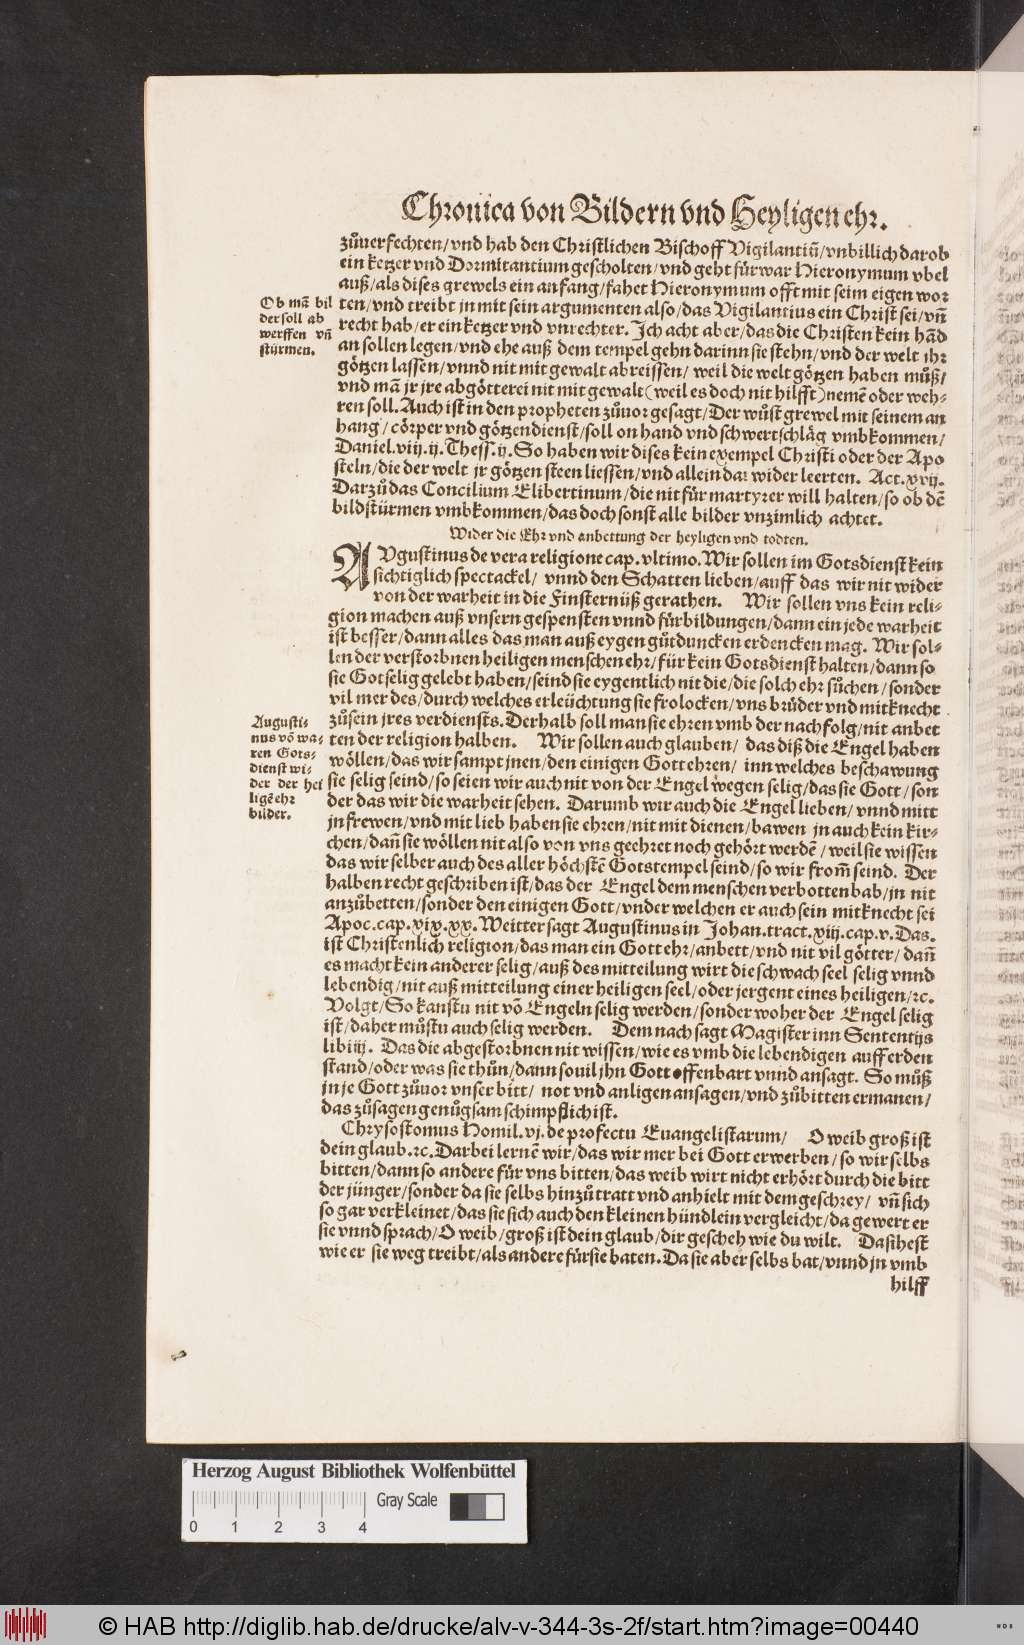 Chronica von Bildern vnd Heyligen ehr.
zůuerfechten/vnd hab den Christlichen Bischoff Vigilantiũ/vnbillich darob
ein ketzer vnd Dormitantium gescholten/vnd geht fürwar Hieronymum vbel
auß/als dises grewels ein anfang/fahet Hieronymum offt mit seim eigen wor
ten/vnd treibt jn mit sein argumenten also/das Vigilantius ein Christ sei/vñ
recht hab/er ein ketzer vnd vnrechter. Ich acht aber/das die Christen kein hãd
an sollen legen/vnd ehe auß dem tempel gehn darinn sie stehn/vnd der welt ihr
götzen lassen/vnnd nit mit gewalt abreissen/ weil die welt götzen haben můß/
vnd mã jr jre abgötterei nit mit gewalt (weil es doch nit hilfft) nemẽ oder weh-
ren soll. Auch ist in den propheten zůuor gesagt/Der wůst grewel mit seinem an
hang/ cörper vnd götzendienst/soll on hand vnd schwertschläg vmbkommen/
Daniel.viij.ij.Thess.ij. So haben wir dises kein exempel Christi oder der Apo
steln/die der welt jr götzen steen liessen/vnd allein dar wider leerten. Act.xvij.
Darzů das Concilium Elibertinum/die nit für martyrer will halten/so ob dẽ
bildstürmen vmbkommen/das doch sonst alle bilder vnzimlich achtet.
Ob mã bil
der soll ab
werffen vñ
stürmen.
Wider die Ehr vnd anbettung der heyligen vnd todten.
AVgustinus de vera religione cap. vltimo. Wir sollen im Gotsdienst kein
sichtiglich spectackel/ vnnd den Schatten lieben/auff das wir nit wider
von der warheit in die Finsternüß gerathen. Wir sollen vns kein reli-
gion machen auß vnsern gespensten vnnd fürbildungen/dann ein jede warheit
ist besser/dann alles das man auß eygen gůtduncken erdencken mag. Wir sol-
len der verstorbnen heiligen menschen ehr/für kein Gotsdienst halten/dann so
sie Gotselig gelebt haben/seind sie eygentlich nit die/die solch ehr sůchen/sonder
vil mer des/durch welches erleüchtung sie frolocken/vns brüder vnd mitknecht
zůsein jres verdiensts. Derhalb soll man sie ehren vmb der nachfolg/nit anbet
ten der religion halben. Wir sollen auch glauben/ das diß die Engel haben
wöllen/das wir sampt jnen/den einigen Gott ehren/ inn welches beschawung
sie selig seind/so seien wir auch nit von der Engel wegen selig/das sie Gott/son
der das wir die warheit sehen. Darumb wir auch die Engel lieben/vnnd mitt
jn frewen/vnd mit lieb haben sie ehren/nit mit dienen/bawen jn auch kein kir-
chen/dañ sie wöllen nit also von vns geehret noch gehört werdẽ/weil sie wissen
das wir selber auch des aller höchstẽ Gotstempel seind/so wir from̃ seind. Der
halben recht geschriben ist/das der Engel dem menschen verbotten hab/jn nit
anzůbetten/sonder den einigen Gott/vnder welchen er auch sein mitknecht sei
Apoc.cap.xix.xx. Weitter sagt Augustinus in Johan.tract.xiij.cap.v. Das
ist Christenlich religion/das man ein Gott ehr/anbett/vnd nit vil götter/dañ
es macht kein anderer selig/auß des mitteilung wirt die schwach seel selig vnnd
lebendig/nit auß mitteilung einer heiligen seel/oder jergent eines heiligen/ꝛc.
Volgt/So kanstu nit võ Engeln selig werden/sonder woher der Engel selig
ist/daher můstu auch selig werden. Demnach sagt Magister inn Sententijs
lib iiij. Das die abgestorbnen nit wissen/wie es vmb die lebendigen auff erden
stand/oder was sie thůn/dann souil jhn Gott offenbart vnnd ansagt. So můß
jn je Gott zůuor vnser bitt/ not vnd anligen ansagen/vnd zůbitten ermanen/
das zůsagen genůgsam schimpflich ist.
Augusti-
nus võ wa-
ren Gots-
dienst wi-
der der hei
ligẽ ehr
bilder.
Chrysostomus Homil.vj.de profectu Euangelistarum/ O weib groß ist
dein glaub.ꝛc. Darbei lernẽ wir/das wir mer bei Gott erwerben/so wir selbs
bitten/dann so andere für vns bitten/das weib wirt nicht erhört durch die bitt
der jünger/sonder da sie selbs hinzů tratt vnd anhielt mit dem geschrey/ vñ sich
so gar verkleinet/das sie sich auch den kleinen hündlein vergleicht/da gewert er
sie vnnd sprach/O weib/groß ist dein glaub/dir gescheh wie du wilt. Da sihest
wie er sie weg treibt/als andere für sie baten. Da sie aber selbs bat/vnnd jn vmb
hilff
Herzog August Bibliothek Wolfenbüttel
Gray Scale
0 1 2 3 4
© HAB http://diglib.hab.de/drucke/alv-v-344-3s-2f/start.htm?image=00440